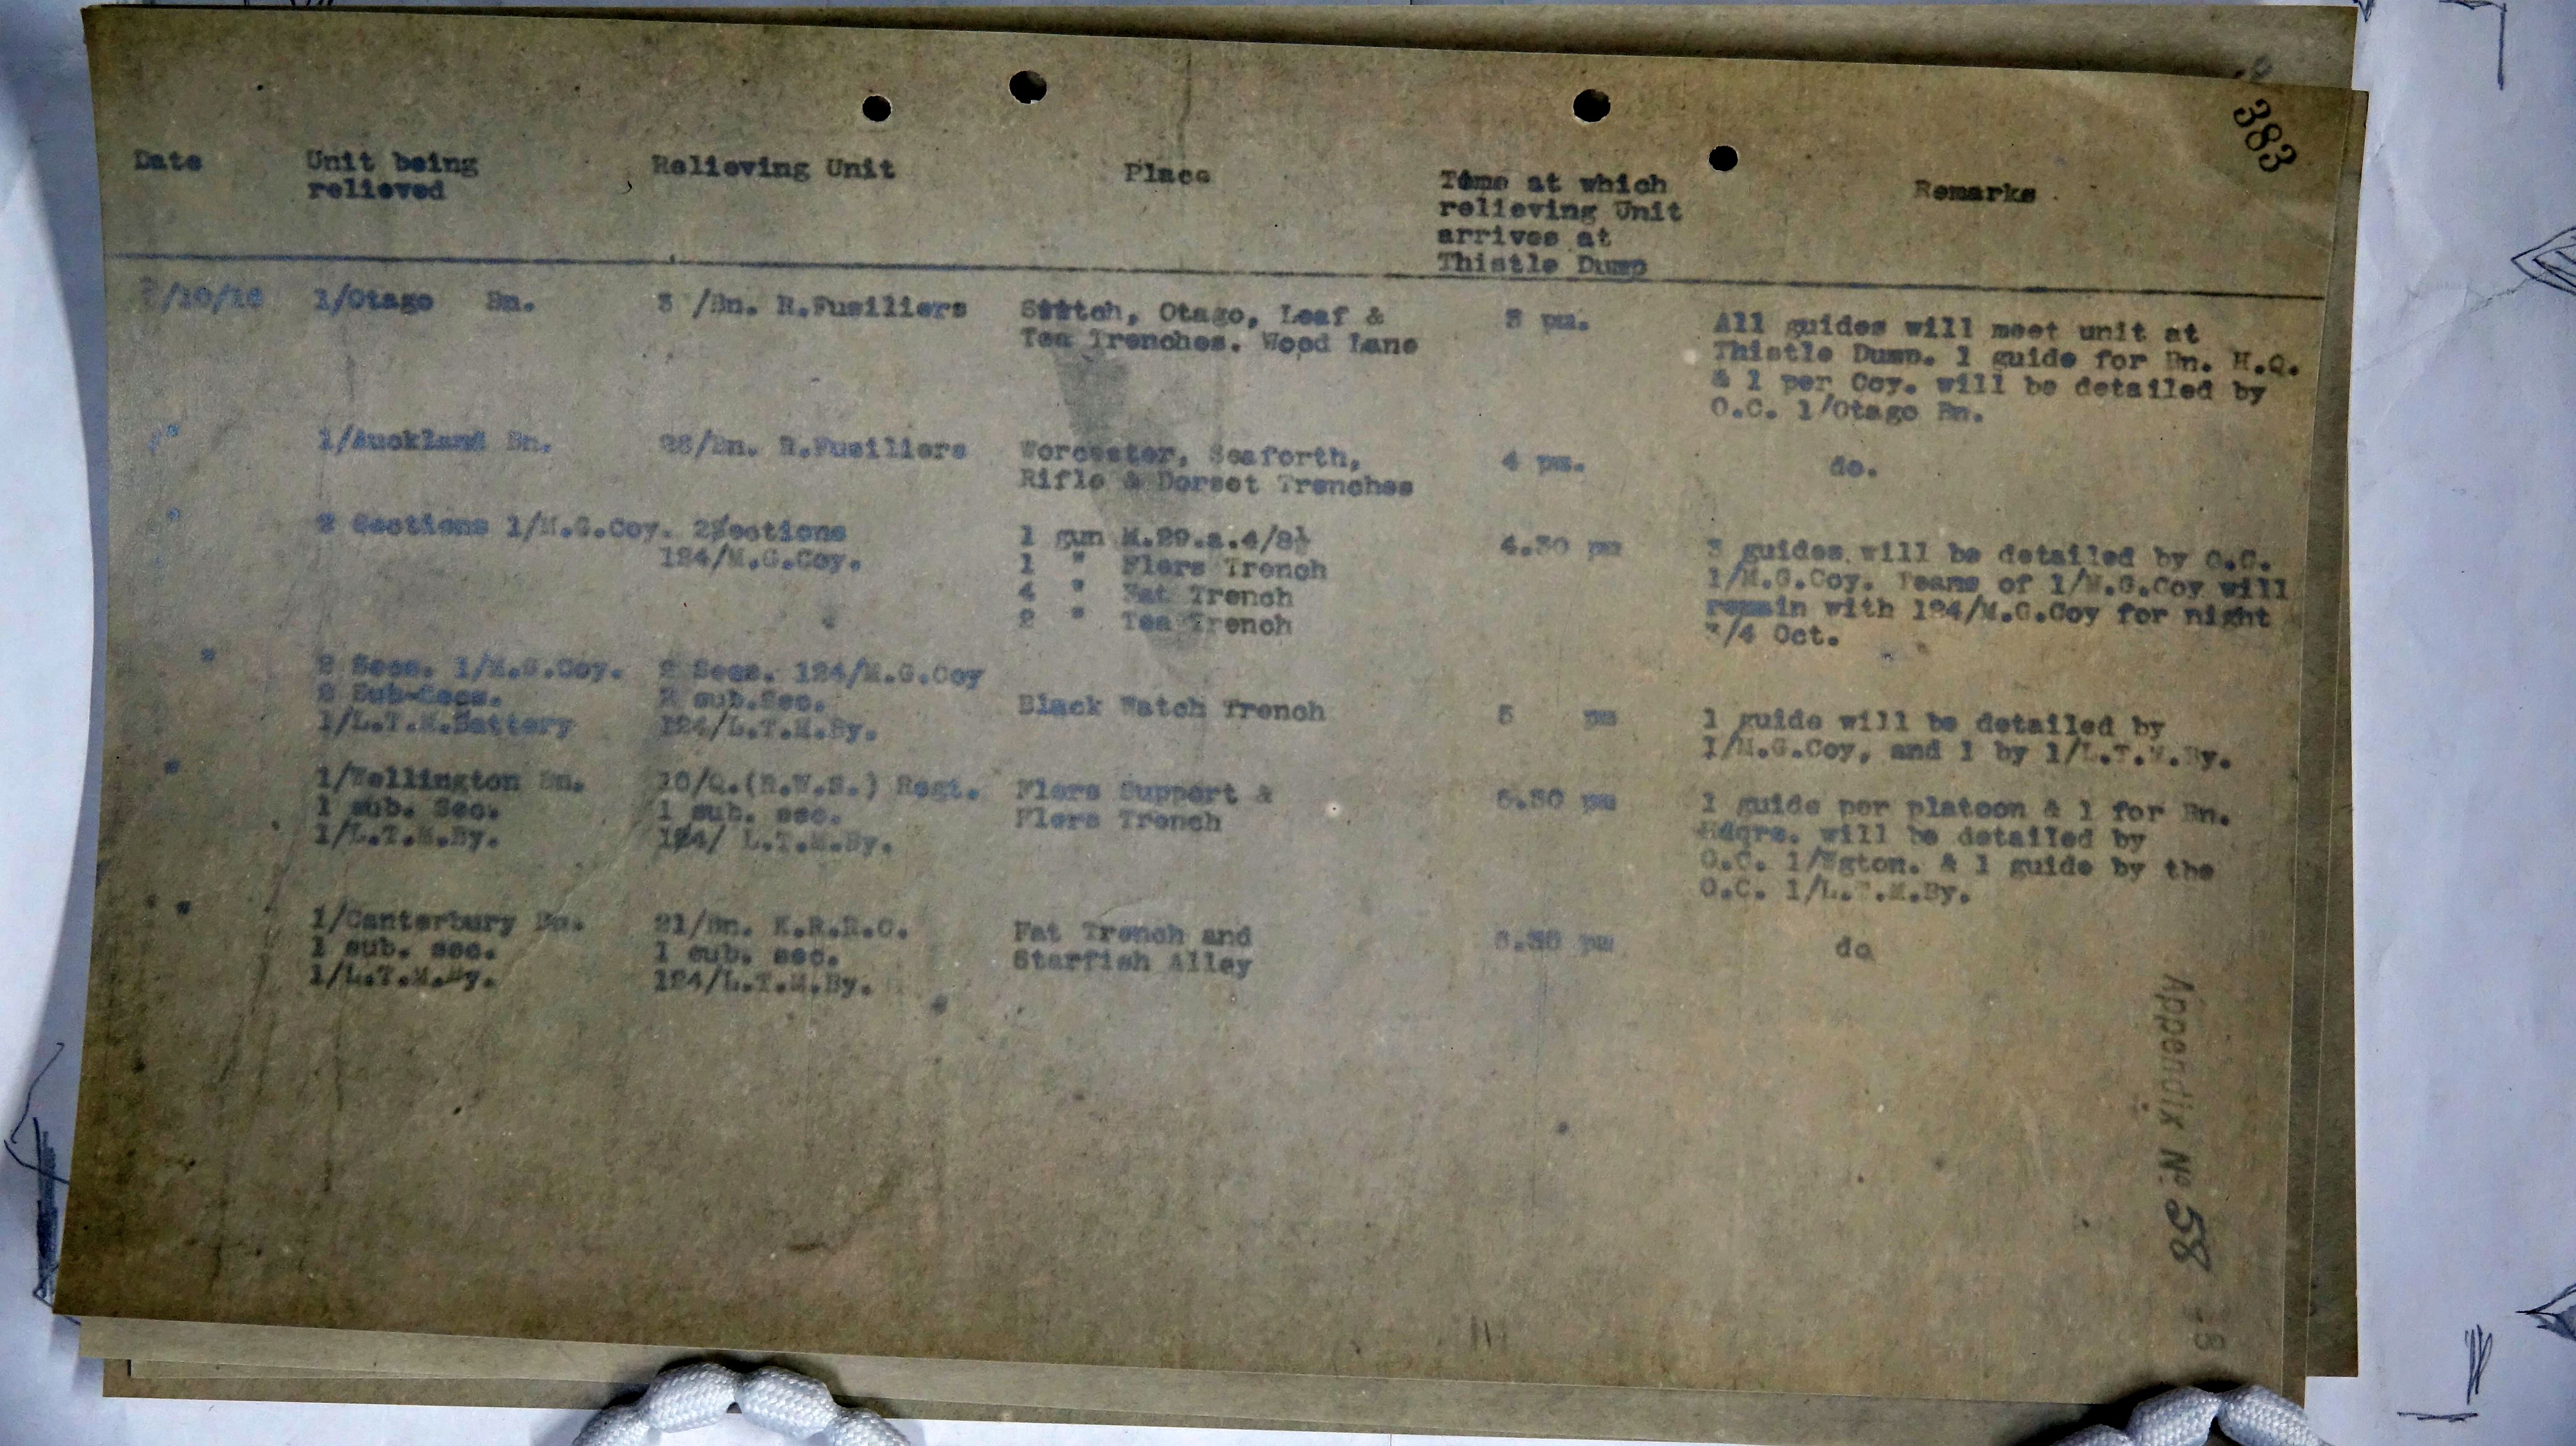 383
Date Unit being Relieving Unit Place Time at which Remarks
relieved relieving Unit
arrives at
Thistle Dump
/10/16 1/Otago Bn. 3 /Bn. R.Fusiliers Stitch, Otago, Leaf & 3 pm. All guides will meet unit at
Tea Trenches. Wood Lane Thistle Dump. 1 guide for Bn. H.Q.
& 1 per Coy. will be detailed by
O.C. 1/Otago Bn.
" 1/Auckland Bn. 26/Bn. R.Fusiliers Worcester, Seaforth, 4 pm. do.
Rifle & Dorset Trenches
" 2 Sections 1/M.G.Coy. 2Sections 1 gun M.29.a.4/8½ 4.30 pm 3 guides will be detailed by O.C.
124/M.G.Coy. 1 " Flers Trench 1/M.G.Coy. Teams of 1/M.G.Coy will
4 " Fat Trench remain with 124/M.G.Coy for night
2 " Tea Trench 3/4 Oct.
" 2 Secs. 1/M.G.Coy. 2 Secs. 124/M.G.Coy
2 Sub-Secs. 2 sub.Sec. Black Watch Trench 5 pm 1 guide will be detailed by
1/L.T.M.Battery 124/L.T.M.By. 1/M.G.Coy, and 1 by 1/L.T.M.By.
" 1/Wellington Bn. 10/Q.(R.W.S.) Regt. Flers Support & pm 1 guide per platoon & 1 for Bn.
1 sub. Sec. 1 sub. sec. Flers Trench Hdqrs. will be detailed by
1/L.T.M.By. 124/ L.T.M.By. O.C. 1/Wgton. & 1 guide by the
O.C. 1/L.T.M.By.
" 1/Canterbury Bn. 21/Bn. K.R.R.C. Fat Trench and pm do
1 sub. sec. 1 sub. sec. Starfish Alley
1/L.T.M.By. 124/L.T.M.By.
Appendix No. 58